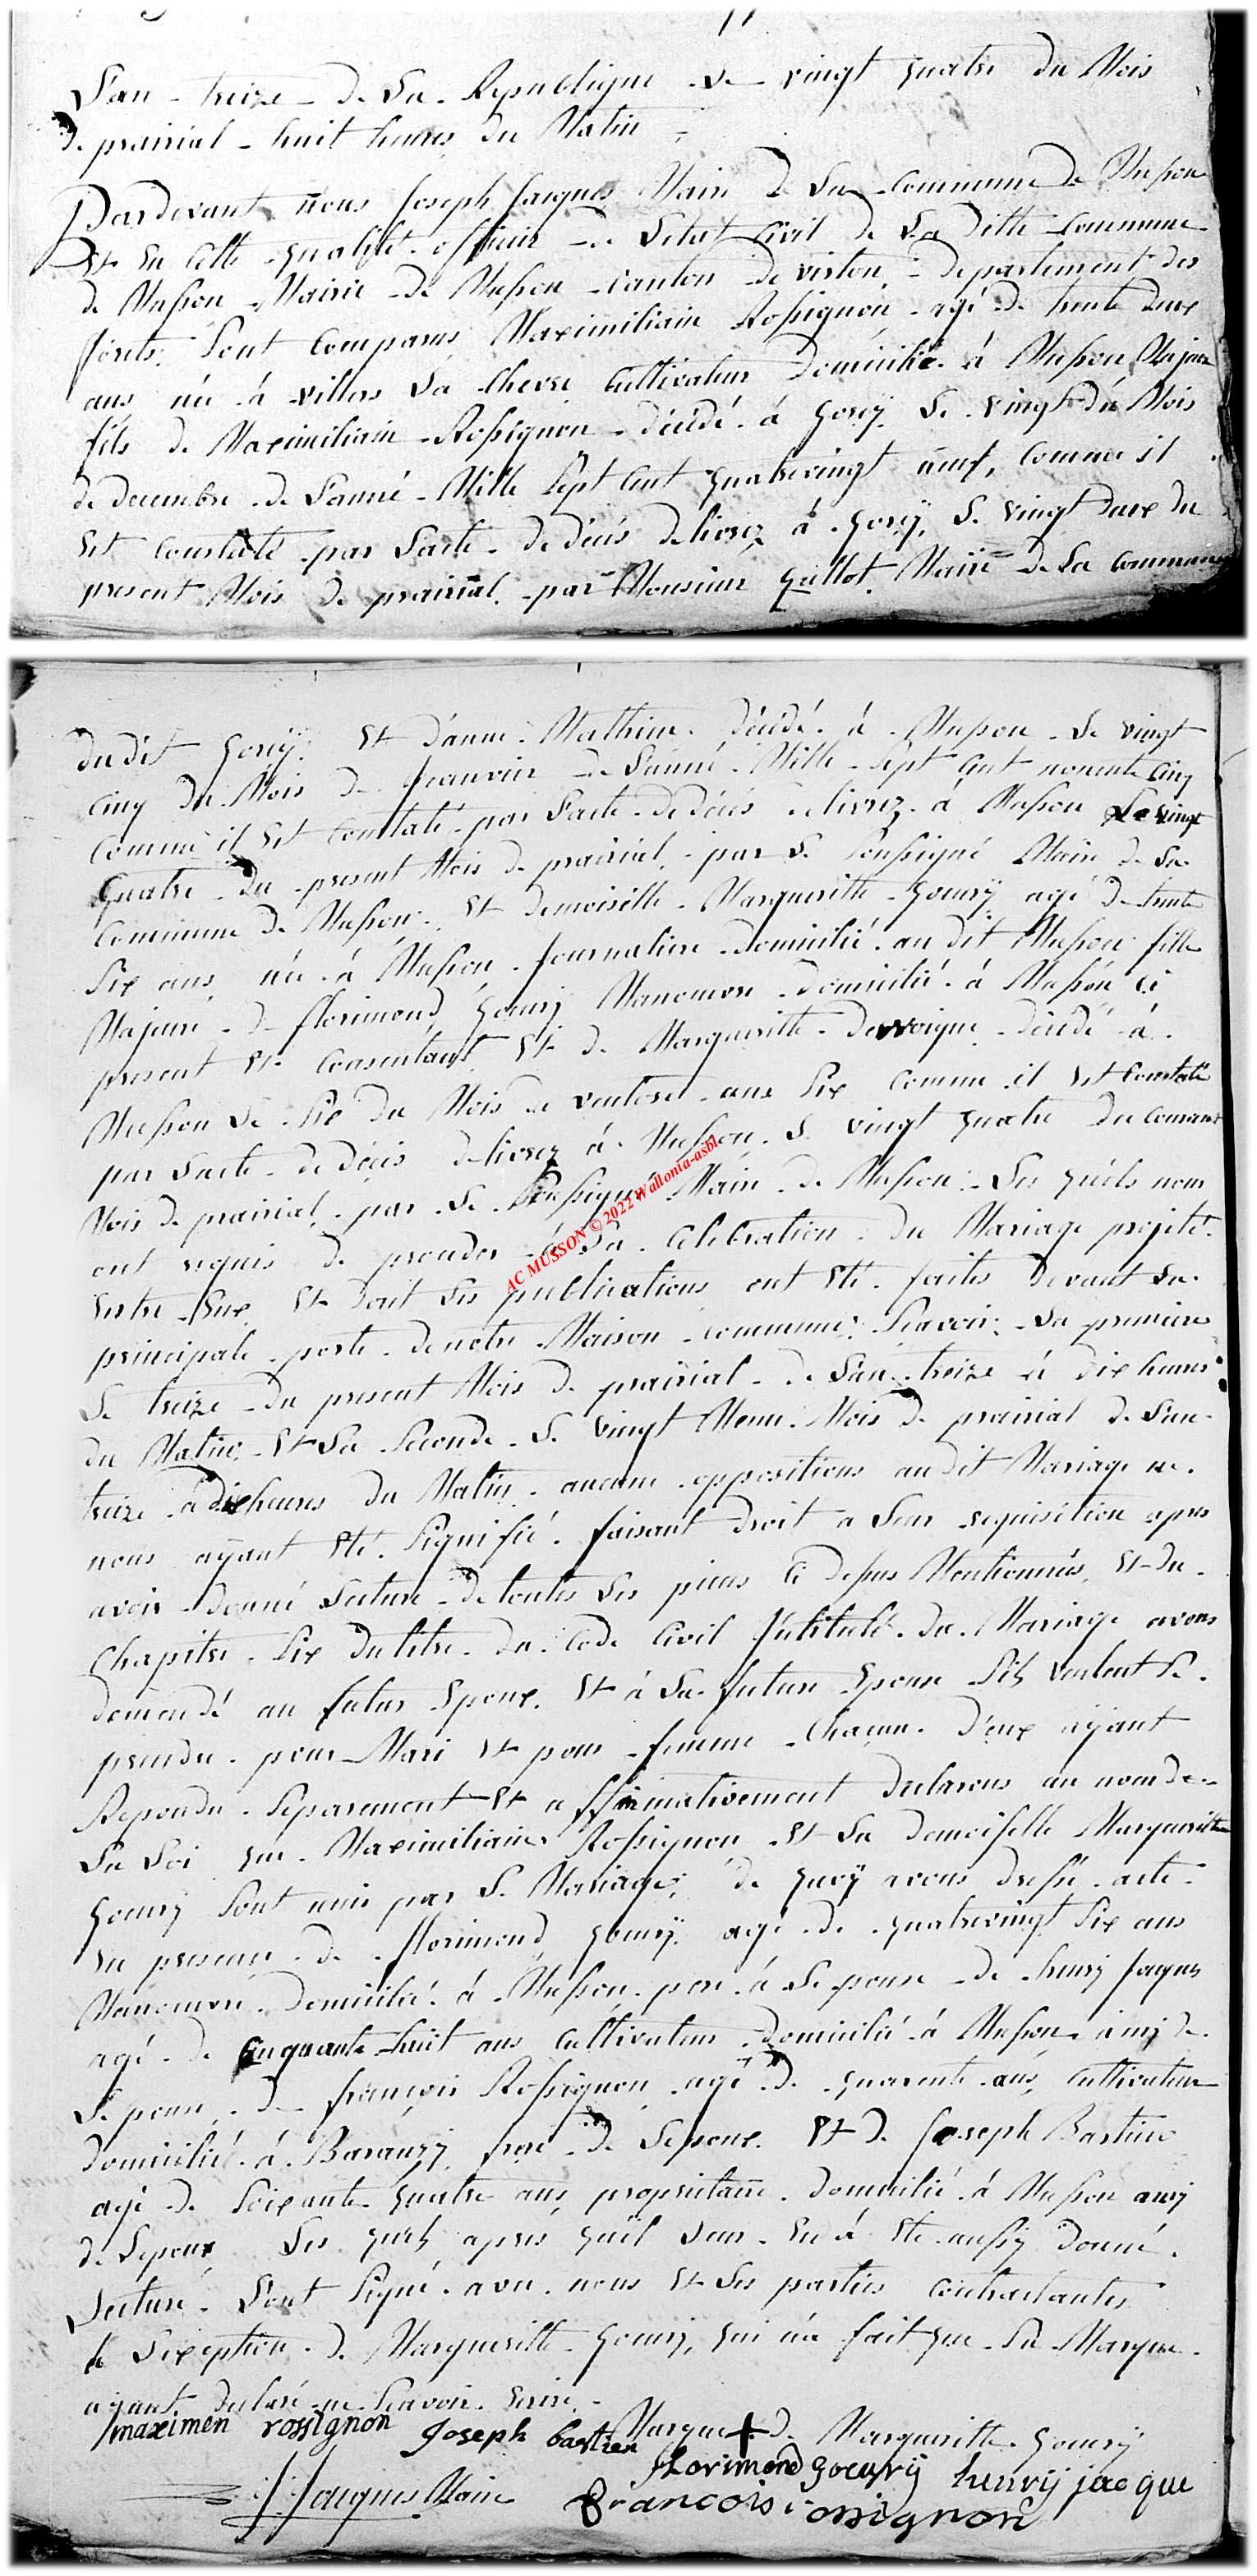 L'an treize de La Republique Le vingt quatre du Mois
de prairial huit heures du Matin
Pardevant nous Joseph Jaques Maire de La Commune de Musson
Et En Cette qualité officier de L'etat Civil de La ditte Commune
de Musson Mairie de Musson Canton de virton, departement des
forets, Sont Comparus Maximiliain Rossignon agé de trente deux
ans né à villers La chevre Cultivateur Domicilié à Musson Majeur
fils de Maximiliain Rossignon décédé à Gorcÿ Le vingt du Mois
de decembre de L'anné Mille Sept Cent quatrevingt neuf, Comme il
Est Constaté par L'acte de décés delivrez à Gorcÿ, Le vingt deux du
present Mois de prairial par Monsieur Guillot Maire de La Commune
dudit Gorcÿ. Et d'anne Mathieu décédé à Musson Le vingt
Cinq du Mois de Jeanvier de L'anné Mille Sept Cent nonente Cinq
Comme il Est Constaté par L'acte de décés delivrez à Musson Le vingt
quatre du present Mois de prairial par Le Soussigné Maire de La
Commune de Musson. Et demoiselle Margueritte Goury agé de trente
Six ans né à Musson Journaliere domicilié audit Musson fille
Majeure de florimond Goury Manouvre domicilié à Musson Ci
present Et Consentant Et de Margueritte décédé à
Musson Le Six du Mois de ventose ans Six Comme il Est Constaté
par L'acte de décés delivrez à Musson Le vingt quatre du Courant
Mois de prairial par Le Soussigné Maire de Musson. Les quels nous
ont requis de proceder à La Celebration du Mariage projeté
Entre Eux Et dont Les publications ont Eté faites devant La
principale porte de notre Maison Commune; Sçavoir, La premiere
Le treize du present Mois de prairial de L'an treize à dix heures
du Matin Et La Seconde Le vingt Meme Mois de prairial de L'an
treize à dix heures du Matin aucune oppositions audit Mariage ne
nous aÿant Eté Signifié faisant droit a Leur requisition apres
avoir donné Lecture de toutes Les pieces Ci dessus Mentionnés, Et du
Chapitre Six du titre du Code Civil Jntitulé du Mariage avons
demendé au futur Epoux Et à La future Epouse S'ils veulent Se
prendre pour Mari Et pour femme Chacun d'eux aÿant
Repondu Separement Et affirmativement declarons au nom de
La Loi que Maximiliain Rossignon Et La demoiselle Margueritte
Goury Sont unis par Le Mariage; de quoÿ avons dressé acte
En presence de florimond Goury agé de quatrevingt Six ans
Manouvre domicilié à Musson pere à L'epouse de henry Jaques
agé de Cinquante huit ans Cultivateur domicilié à Musson amy de
L'epouse de françois Rossignon agé de quarente ans Cultivateur
domicilié à Baranzy frere de L'epoux Et de Joseph Bastien
agé de Soixante quatre ans propriétaire domicilié à Musson amy
de L'epoux Les quels aprés qu'il Leur En à Eté aussy donné
Lecture L'ont Signé avec nous Et Les parties Contractantes
à L'exeption de Margueritte Goury, qui n'à fait que Sa Marque
ayant declaré ne Scavoir Ecrire
maximen rossignon Joseph bastien Marque + de Margueritte Goury
florimond goeury henry jacque
J Jacques Maire francois rossignon
AC MUSSON © 2022 Wallonia-asbl